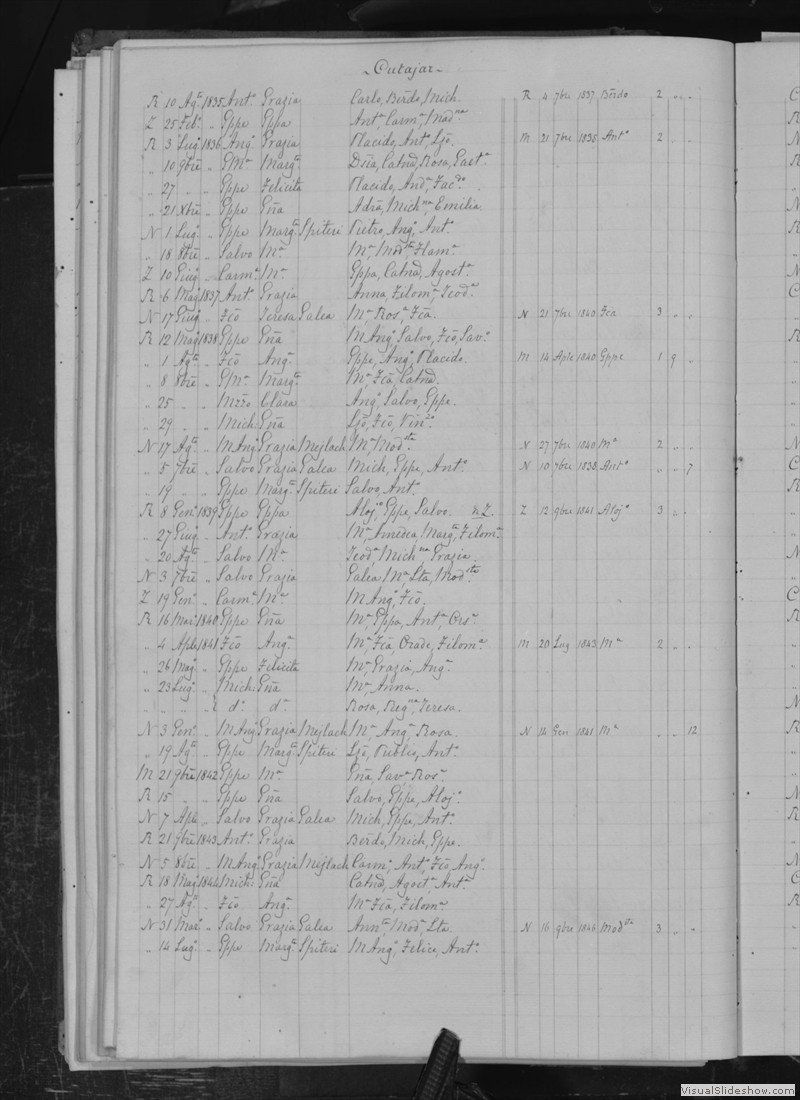 Cutajar
R 10 Agto 1835 Anto Grazia Carlo, Berdo, Mich. R 4 7bre 1837 Berdo 2 " "
Z 25 Feb. " Gppe Gppa Anta Carma Madna
R 3 Lugo 1836 Ango Grazia Placido, Anto, Ljo. M 21 7bre 1838 Anto 2 " "
" 10 9bre " GMa Marga Catnd, Rosa,
" 27 " " Gppe Felicita Placido, Anda,
" 21 Xbre " Gppe Gña Adra, Michna, Emilia.
N 1 Lugo " Gppe Marga Spiteri Pietro, Ango, Anto
" 18 8bre " Salvo Ma Ma
Z 10 Giugo " Carmo Ma Gppa, Catnd, Agosta
R 6 Mago 1837 Anto Grazia Anna, Filoma, Teoda
N 17 Giugo " Fco Teresa Galea Ma Rosa, Fca. N 21 7bre 1840 Fca 3 " "
R 12 Mago 1838 Gppe Gña M Ango, Salvo, Fco, Savo
" 1 Agto " Fco Anga Gppe, Ango, Placido. M 14 Aple 1840 Gppe 1 9 "
" 8 8bre " GMa Marga Ma, Fca, Catnd.
" 25 " " Clara Ango, Salvo, Gppe.
" 29 " " Mich. Gña Ljo, Fco, Vinzo
N 17 Agto " M Ango Grazia Mejlach Ma Modsta N 27 7bre 1840 Ma 2 " "
" 5 7bre " Salvo Grazia Galea Mich, Gppe, Anto N 10 7bre 1838 Anto " " 7
" 19 " " Gppe Marga Spiteri Salvo, Anto
R 8 Geno 1839 Gppe Gppa Alojo, Gppe, Salvo. nZ. Z 12 9bre 1841 Alojo 3 " "
" 27 Giugo " Anto Grazia Ma Amedea, Marga, Filoma
" 20 Agto " Salvo Ma Teoda Michna Grazia.
N 3 7bre " Salvo Grazia Galea Ma Lta, Modsta
Z 19 Geno " Carmo Ma M Ango, Fco.
R 16 Mar. 1840 Gppe Gña Ma, Gppa, Anta, Orsa
" 4 Aple 1841 Fco Anga Ma, Fca, Filoma M 20 Lug 1843 Ma 2 " "
" 26 Mago " Gppe Felicita Ma, Grazia, Anga
" 23 Lugo " Mich. Gña Ma, Anna.
" " " " do do Rosa, Regna, Teresa.
N 3 Geno " M Ango Grazia Mejlach Ma, Anga, Rosa. N 14 Gen 1841 Ma " " 12
" 19 Agto " Gppe Marga Spiteri Ljo, Anto
M 21 9bre 1842 Gppe Ma Gña, Sava, Rosa
R 15 " " Gppe Gña Salvo, Gppe, Alojo
N 7 Aple " Salvo Grazia Galea Mich, Gppe, Anto
R 21 7bre 1843 Anto Grazia Berdo, Mich, Gppe.
N 5 8bre " M Ango Grazia Mejlach Carmo, Anto, Fco, Ango
R 18 Mago 1844 Mich. Gña Catnd, Agosta, Anta
" 27 Agto " Fco Anga Ma Fca, Filoma
N 31 Mar. " Salvo Grazia Galea Annta, Moda, Lta. N 16 9bre 1846 Modsta 3 " "
" 14 Lugo " Gppe Marga Spiteri M Ango, Felice, Anto
VisualSlideshow.com